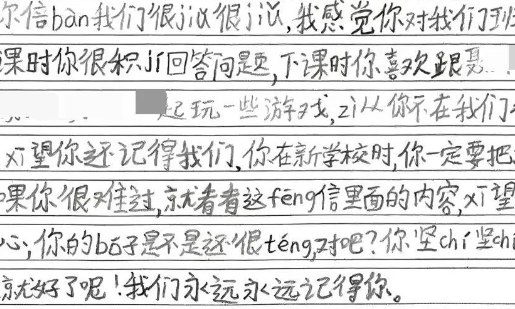 你信ban我们很jiǔ很jiǔ,我感觉你对我们
课时你很积jí回答问题,下课时你喜欢跟聂
起玩一些游戏,zì从你不在我们
xī望你还记得我们,你在新学校时,你一定要把
果你很难过,就看看这fēng信里面的内容,xī望
心,你的bó子是不是还很téng,对吧?你坚chí坚chí
就好了呢!我们永远永远记得你。